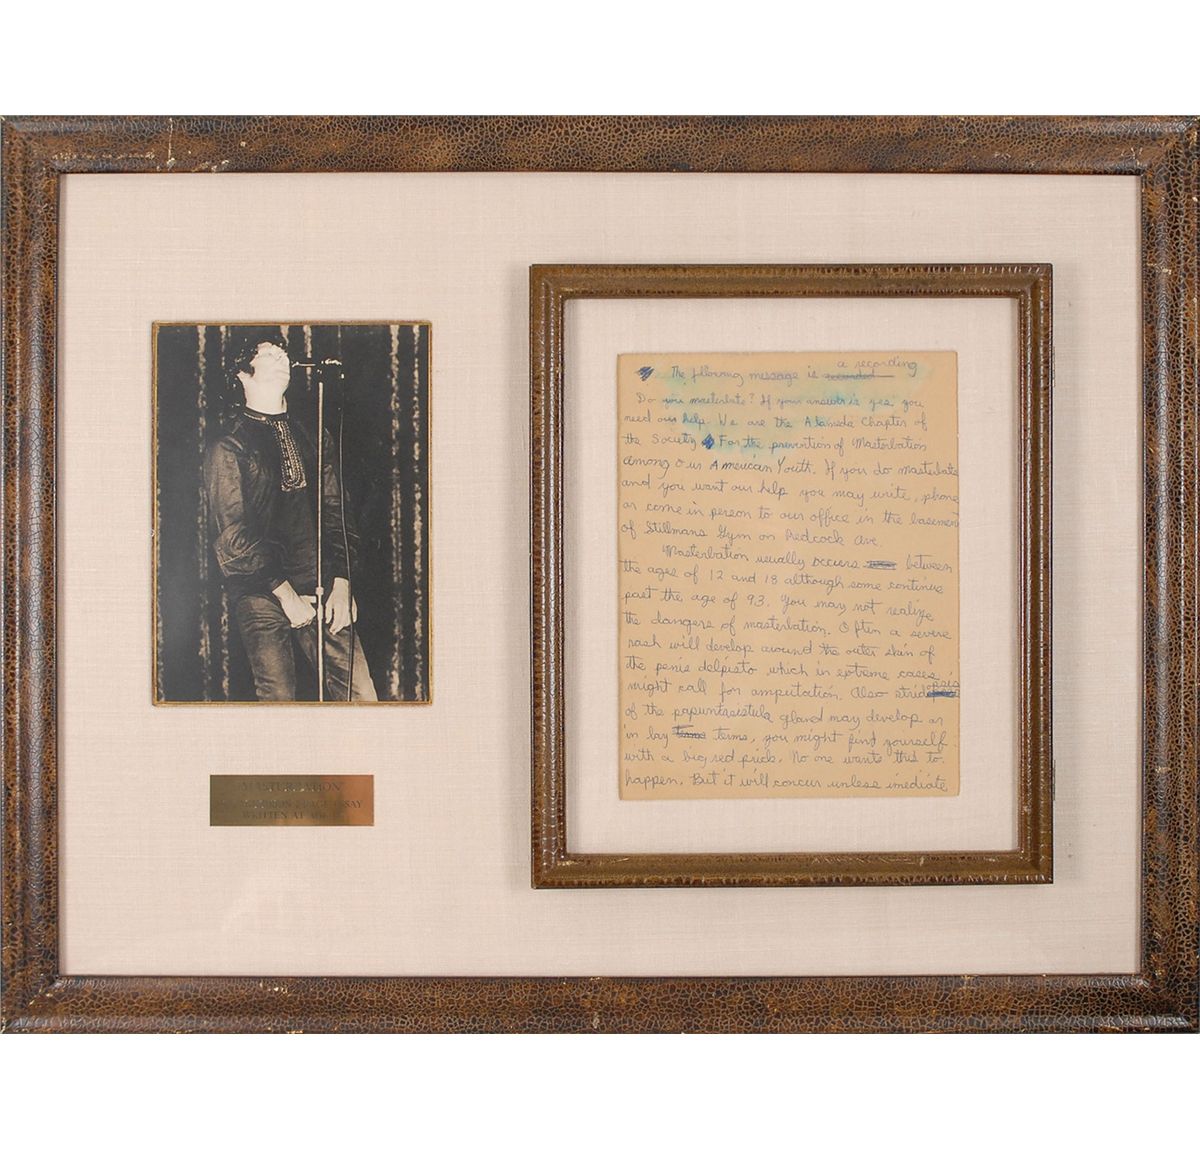 "MASTERBATION"
WRITTEN AT AGE
The fllowing message is recorded a recording
Do you masterbate? If your answer is yes you
need our help. We are the Alameda Chapter of
the Society For the prevention of Masterbation
among our American Youth. If you do masterbate
and you want our help you may write, phone
or come in person to our office in the basement
of Stillmans Gym on Redcock Ave.
Masterbation usually occurs between
the ages of 12 and 18 although some continue
past the age of 93. You may not realize
the dangers of masterbation. Often a severe
rash will develop around the outer skin of
the penis delpisto which in extreme cases
might call for amputation. Also stridopsis
of the papuntasistula gland may develop or
in lay terms terms, you might find yourself
with a big red prick. No one wants this to
happen. But it will concur unless imediate